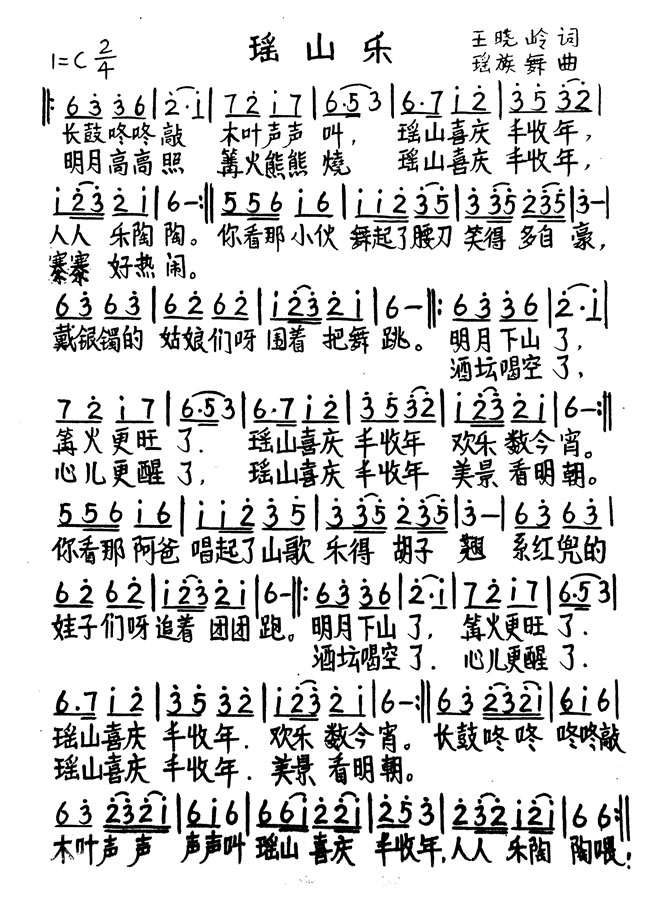 瑶山乐
王晓岭 词
1=C 2/4
瑶族舞曲
‖: 6 3̇ 3̇ 6 | 2̇·i | 7 2̇ i 7 | 6·5 3 | 6·7 i 2̇ | 3̇ 5̇ 3̇2̇ |
长鼓咚咚敲 木叶声声 叫, 瑶山喜庆 丰收年,
明月高高照 篝火熊熊 燒 瑶山喜庆 丰收年,
i 2̇3̇ 2̇ i | 6 – :‖ 5 5 6 i 6 | i i 2̇ 3̇5̇ | 3̇ 3̇5̇ 2̇3̇5̇ | 3̇ – |
人人 乐陶 陶。你看那 小伙 舞起了腰刀 笑得 多自 豪,
寨寨 好热 闹。
6 3̇ 6 3̇ | 6 2̇ 6 2̇ | i 2̇3̇ 2̇ i | 6 – ‖: 6 3̇ 3̇ 6 | 2̇·i |
戴银镯的 姑娘们呀 围着 把舞 跳。 明月下山 了,
酒坛喝空 了,
7 2̇ i 7 | 6·5 3 | 6·7 i 2̇ | 3̇ 5̇ 3̇2̇ | i 2̇3̇ 2̇ i | 6 – :‖
篝火更旺 了. 瑶山喜庆 丰收年 欢乐 数今宵。
心儿更醒 了, 瑶山喜庆 丰收年 美景 看明朝。
5 5 6 i 6 | i i 2̇ 3̇ 5̇ | 3̇ 3̇5̇ 2̇3̇5̇ | 3̇ – | 6 3̇ 6 3̇ |
你看那 阿爸 唱起了山歌 乐得 胡子 翘 系红兜的
6 2̇ 6 2̇ | i 2̇3̇ 2̇ i | 6 – ‖: 6 3̇ 3̇ 6 | 2̇·i | 7 2̇ i 7 | 6·5 3 |
娃子们呀 追着 团团 跑。明月下山 了, 篝火更旺 了.
酒坛喝空 了. 心儿更醒 了.
6·7 i 2̇ | 3̇ 5̇ 3̇ 2̇ | i 2̇3̇ 2̇ i | 6 – :‖ 6 3̇ 2̇3̇2̇i | 6 i 6 |
瑶山喜庆 丰收年. 欢乐 数今宵。长鼓咚 咚 咚咚敲
瑶山喜庆 丰收年. 美景 看明朝。
6 3̇ 2̇3̇2̇i | 6 i 6 | 6 6 i 2̇2̇i | 2̇ 5̇ 3̇ | 2̇ 2̇3̇2̇ i 2̇ i | 6 6 :‖
木叶声 声 声声叫 瑶山 喜庆 丰收年,人人 乐陶 陶喂!